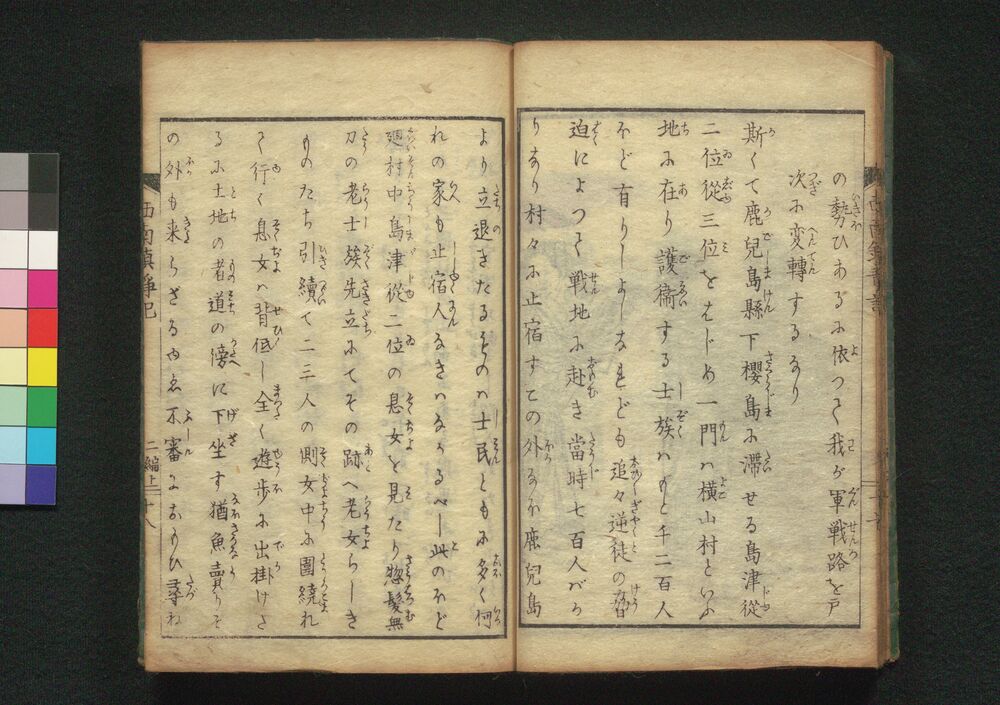 の勢ひあるに依つて我が軍戦路を戸
次に変轉するなり
斯くて鹿兒島縣下櫻島に滞せる島津従
二位従三位をはじめ一門ハ横山村といふ
地に在り護衛する士族ハもと千二百人
ほど有りしよしなれども追々逆徒の脅
迫によつて戦地に赴き當時七百人バか
りあり村々に止宿すその外なほ鹿兒島
より立退きたるものハ士民ともに多く何
れの家も止宿人なきハなかるべし此のほど
廻村中島津従二位の息女を見たり惣髪無
刀の老士族先立にてその跡へ老女らしき
ものたち引續て二三人の側女中に圍繞れ
て行く息女ハ背低し全く遊歩に出掛けた
るに土地の者道の傍に下坐す猶魚賣りそ
の外も来らざるゆゑ不審におもひ尋ね
西南鎮静記
二編上
十八